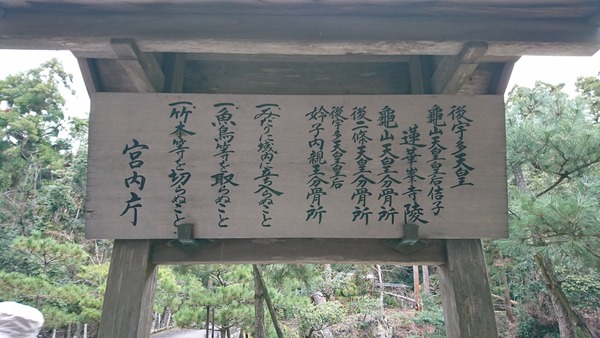 後宇多天皇
龜山天皇皇后佶子
蓮華峯寺陵
龜山天皇分骨所
後二條天皇分骨所
後宇多天皇皇后
姈子内親王分骨所
一みだりに域内に立入らぬこと
一魚鳥等を取らぬこと
一竹木等を切らぬこと
宮内庁